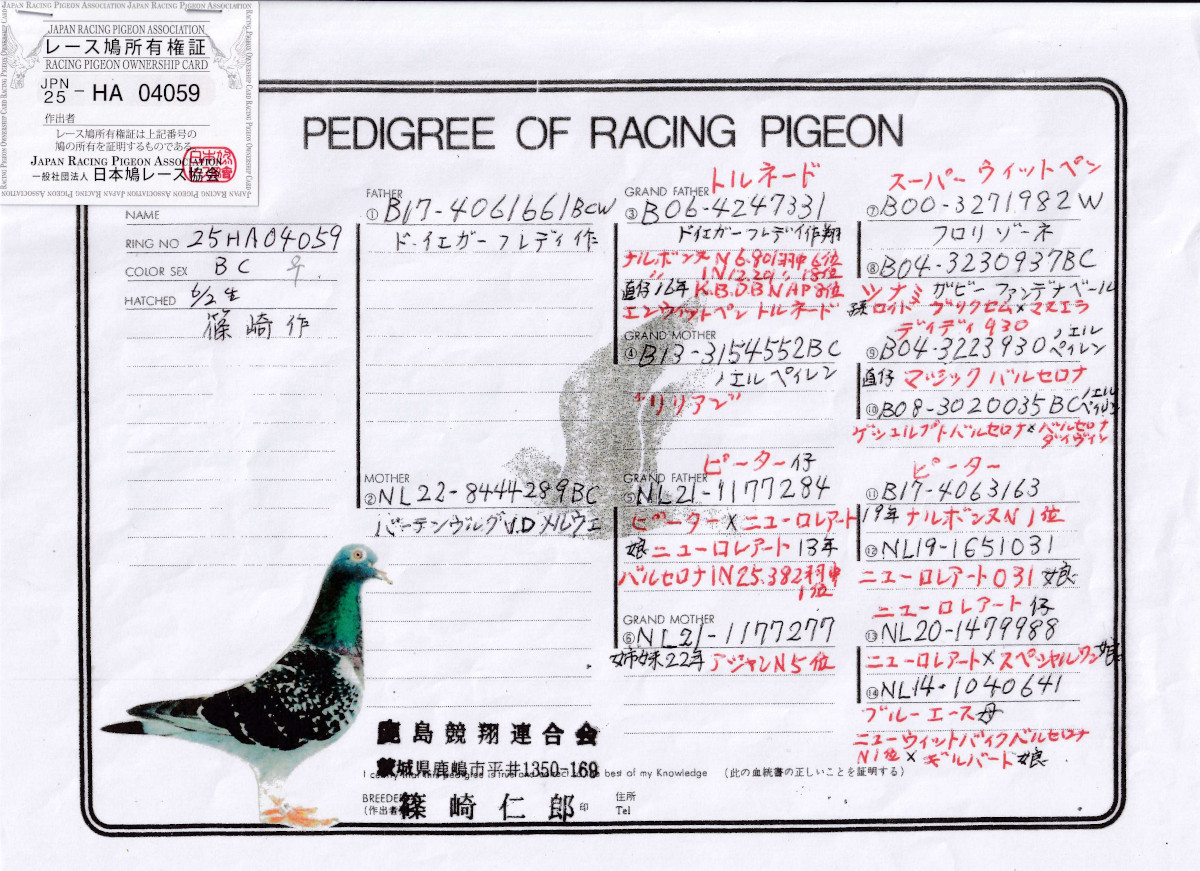 JAPAN RACING PIGEON ASSOCIATION
レース鳩所有権証
RACING PIGEON OWNERSHIP CARD
JPN
25 - HA 04059
作出者
レース鳩所有権証は上記番号の
鳩の所有を証明するものである。
JAPAN RACING PIGEON ASSOCIATION
一般社団法人 日本鳩レース協会
PEDIGREE OF RACING PIGEON
NAME
RING NO 25HA04059
COLOR SEX BC ♀
HATCHED 6/2生
篠崎作
FATHER
① B17-4061661BCW
ドイエガーフレディ作
MOTHER
② NL22-8444289BC
バーテンヴルグV.Dメルウェ
トルネード
GRAND FATHER
③ B06-4247331
ドイエガーフレディ作翔
ナルボンヌN6.801羽中6位
〃 IN12.201〃18位
直仔16年K.B.D.B NAP8位
エンウィットペントルネード
GRAND MOTHER
④ B13-3154552BC
ノエルペイレン
"リリアン"
ピーター仔
GRAND FATHER
⑤ NL21-1177284
ピーター×ニューロレアート
娘ニューロレアート13年
バルセロナIN25.382羽中
1位
GRAND MOTHER
⑥ NL21-1177277
姉妹22年アジャンN5位
スーパーウィットペン
⑦ B00-3271982W
フロリゾーネ
⑧ B04-3230937BC
ツナミ ガビーファンデナベール
孫ロイドヴックセム×マヌエラ
ディディ930
⑨ B04-3223930 ノエルペイレン
直仔マジックバルセロナ
⑩ B08-3020035BC ノエルペイレン
ゲシェルプトバルセロナ×バルセロナ
ダイヴィン
ピーター
⑪ B17-4063163
19年ナルボンヌN1位
⑫ NL19-1651031
ニューロレアート031娘
ニューロレアート仔
⑬ NL20-1479988
ニューロレアート×スペシャルワン娘
⑭ NL14-1040641
ブルーエース母
ニューウィットバイクバルセロナ
N1位×ギルバート娘
鹿島競翔連合会
茨城県鹿嶋市平井1350-169
I certify that this pedigree is true and correct to the best of my Knowledge (この血統書の正しいことを証明する)
BREEDER
(作出者) 篠崎仁郎 印
住所
Tel